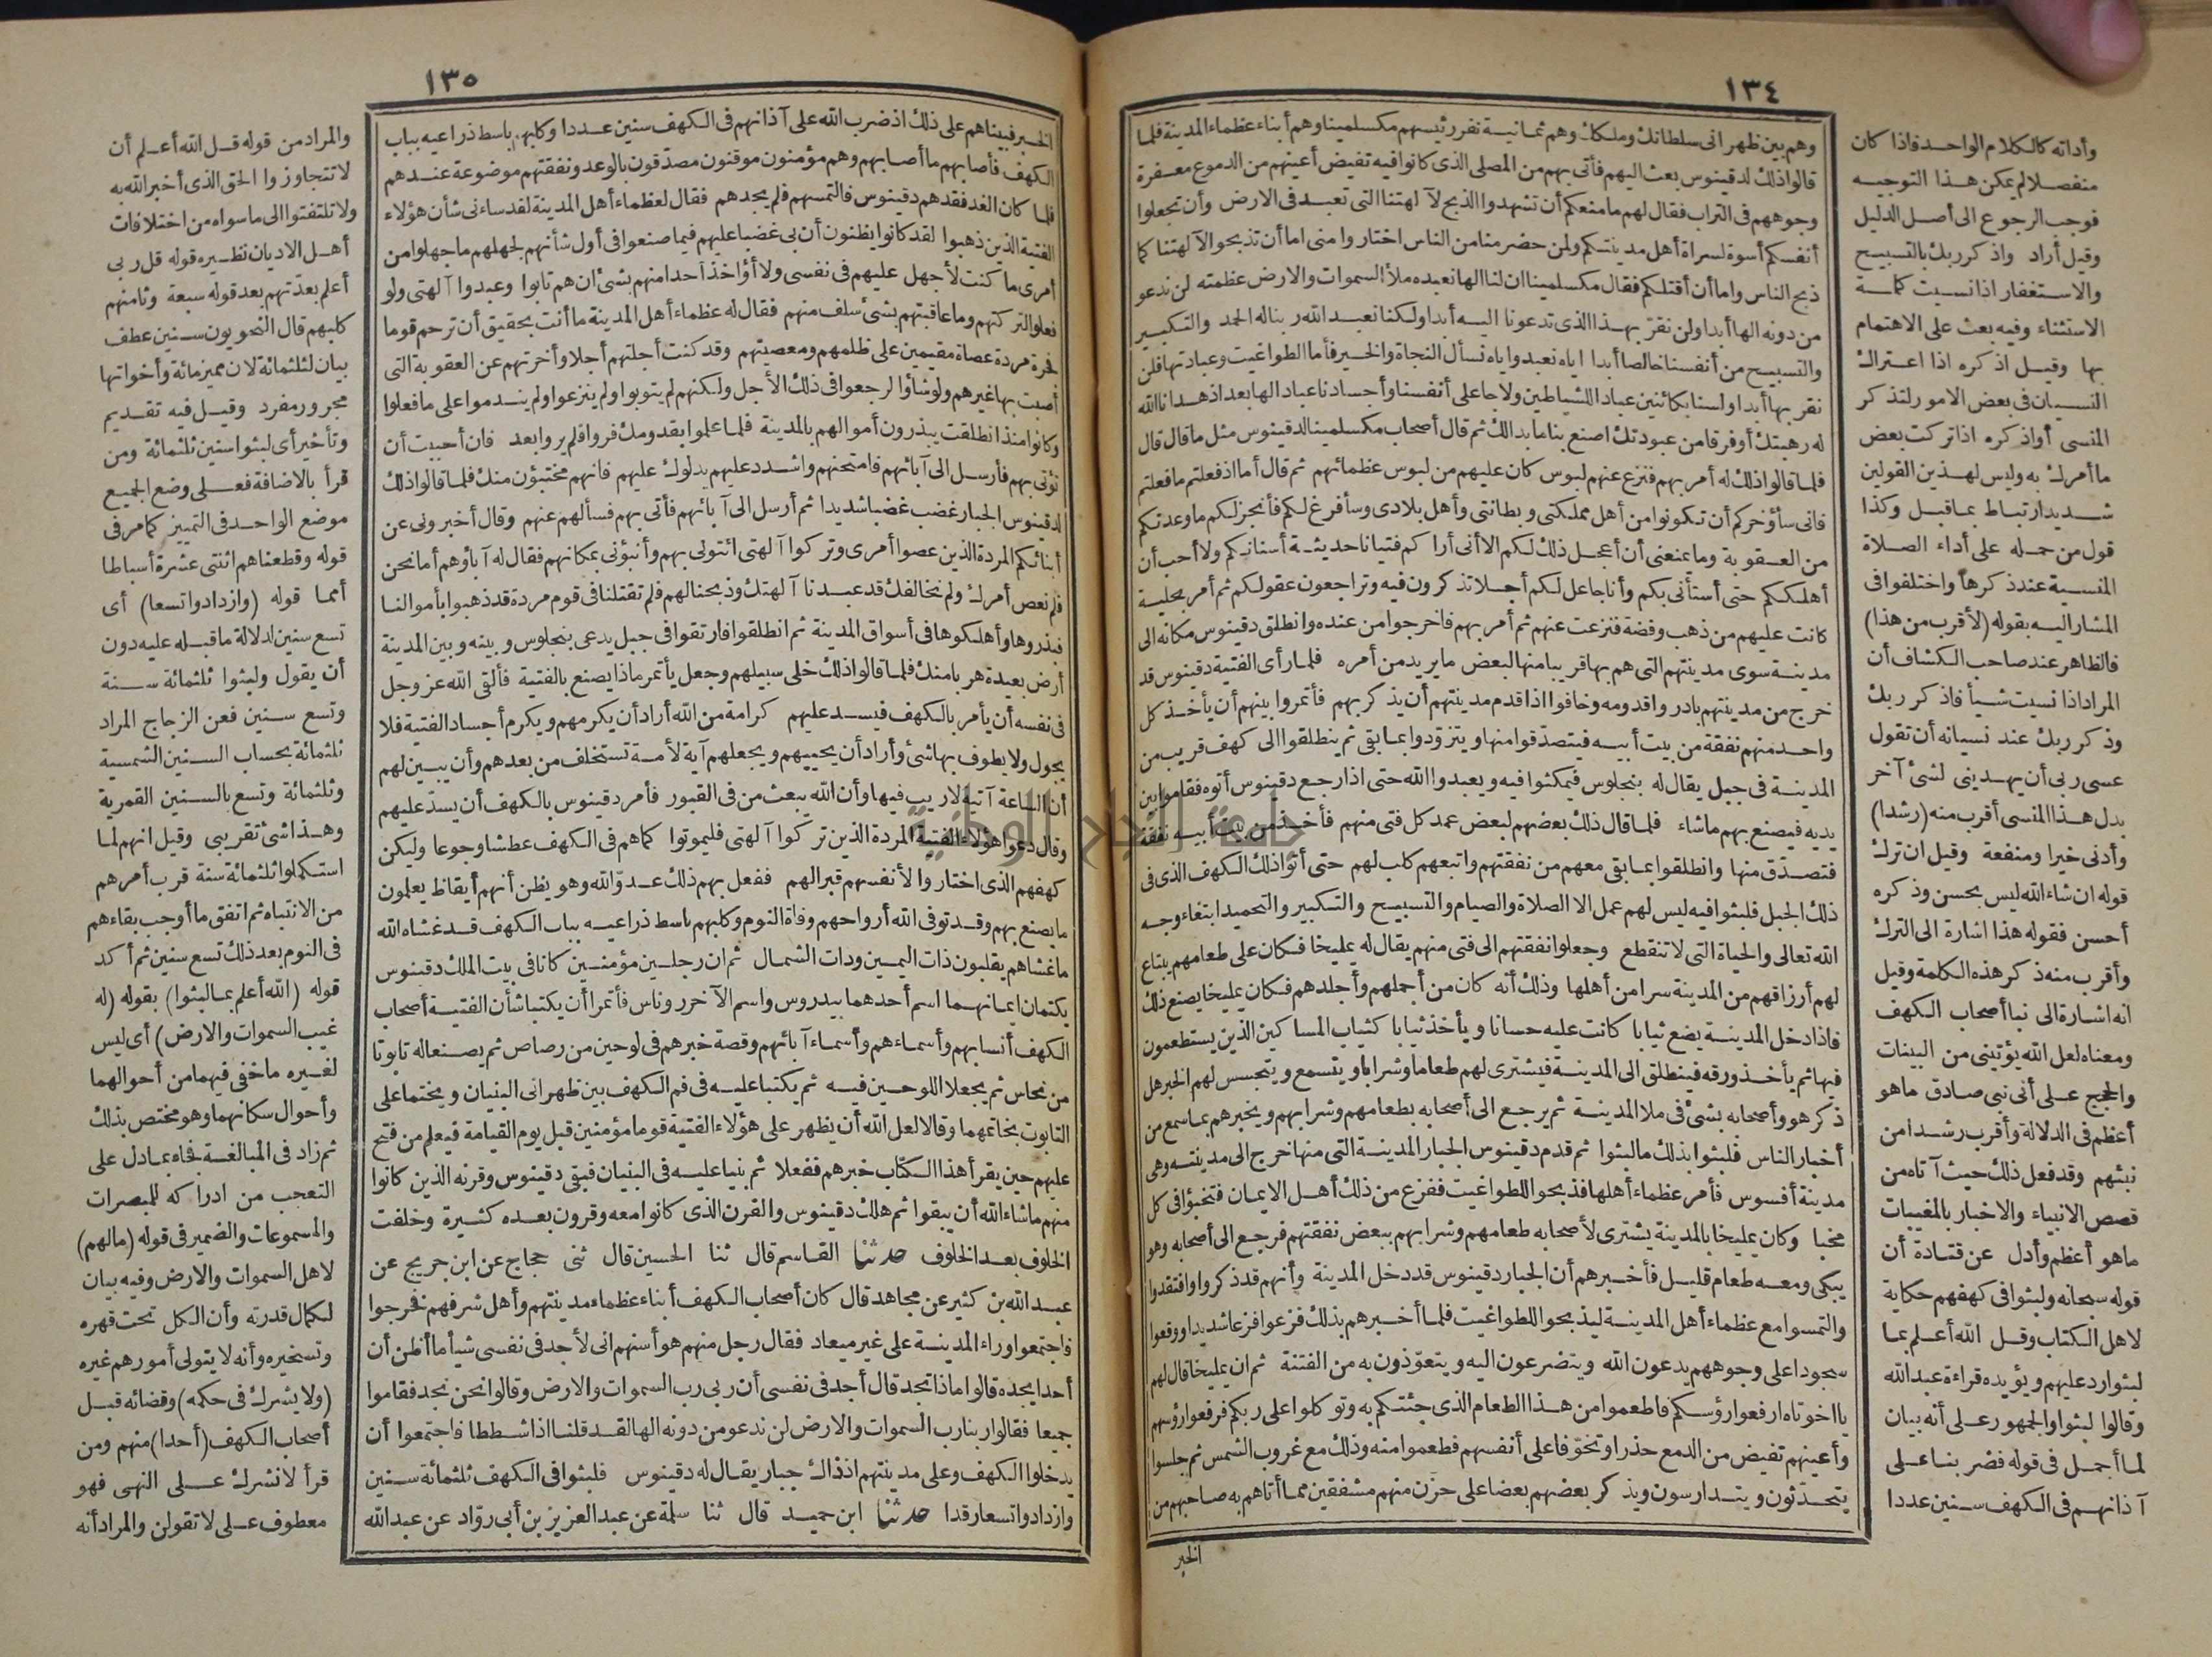 ١٣٤
وهم بين ظهرانى سلطانك وملكك وهم ثمانية نفر رئيسهم مكسلمينا وهم أبناء عظماء المدينة فلما
قالوا ذلك لدقينوس بعث اليهم فأتى بهم من المصلى الذى كانوا فيه تفيض أعينهم من الدموع معفرة
وجوههم فى التراب فقال لهم ما منعكم أن تشهدوا الذبح لآ لهتنا التى تعبد فى الارض وأن تجعلوا
أنفسكم أسوة لسراة أهل مدينتكم ولمن حضر منا من الناس اختاروا منى اما أن تذبحوا لآلهتنا كما
ذبح الناس واما أن أقتلكم فقال مكسلمينا ان لنا الها نعبده ملأ السموات والارض عظمته لن ندعو
من دونه الها أبدا ولن نقر بهذا الذى تدعونا اليه أبدا ولكنا نعبد الله ربنا له الحمد والتكبير
والتسبيح من أنفسنا خالصا أبدا اياه نعبد واياه نسأل النجاة والخير فأما الطواغيت وعبادتها فلن
نقر بها أبدا ولسنا بكائنين عبادا للشياطين ولا جاعلى أنفسنا وأجسادنا عبادا لها بعد اذ هدانا الله
له رهبتك أو فرقا من عبودتك اصنع بنا ما بدا لك ثم قال أصحاب مكسلمينا لدقينوس مثل ما قال قال
فلما قالوا ذلك له أمر بهم فنزع عنهم لبوس كان عليهم من لبوس عظمائهم ثم قال أما اذ فعلتم ما فعلتم
فانى سأؤخركم أن تكونوا من أهل مملكتى وبطانتى وأهل بلادى وسأفرغ لكم فأنجز لكم ما وعدتكم
من العقوبة وما يمنعنى أن أعجل ذلك لكم الا أنى أراكم فتيانا حديثة أسنانكم ولا أحب أن
أهلككم حتى أستأنى بكم وأنا جاعل لكم أجلا تذكرون فيه وتراجعون عقولكم ثم أمر بحلية
كانت عليهم من ذهب وفضة فنزعت عنهم ثم أمر بهم فاخرجوا من عنده وانطلق دقينوس مكانه الى
مدينة سوى مدينتهم التى هم بها قريبا منها لبعض ما يريد من أمره فلما رأى الفتية دقينوس قد
خرج من مدينتهم بادروا قدومه وخافوا اذا قدم مدينتهم أن يذكر بهم فأتمروا بينهم أن يأخذ كل
واحد منهم نفقة من بيت أبيه فيتصدقوا منها ويتزودوا بما بقى ثم ينطلقوا الى كهف قريب من
المدينة فى جبل يقال له بنجلوس فيمكثوا فيه ويعبدوا الله حتى اذا رجع دقينوس أتوه فقاموا بين
يديه فيصنع بهم ما شاء فلما قال ذلك بعضهم لبعض عمد كل فتى منهم فأخذ من بيت أبيه نفقة
فتصدق منها وانطلقوا بما بقى معهم من نفقتهم واتبعهم كلب لهم حتى أتوا ذلك الكهف الذى فى
ذلك الجبل فلبثوا فيه ليس لهم عمل الا الصلاة والصيام والتسبيح والتكبير والتحميد ابتغاء وجه
الله تعالى والحياة التى لا تنقطع وجعلوا نفقتهم الى فتى منهم يقال له يمليخا فكان على طعامهم يبتاع
لهم أرزاقهم من المدينة سرا من أهلها وذلك أنه كان من أجملهم وأجلدهم فكان يمليخا يصنع ذلك
فاذا دخل المدينة يضع ثيابا كانت عليه حسانا ويأخذ ثيابا كثياب المساكين الذين يستطعمون
فيها ثم يأخذ ورقه فينطلق الى المدينة فيشترى لهم طعاما وشرابا ويتسمع ويتجسس لهم الخبر هل
ذكر هو وأصحابه بشئ فى ملا المدينة ثم يرجع الى أصحابه بطعامهم وشرابهم ويخبرهم بما سمع من
أخبار الناس فلبثوا بذلك ما لبثوا ثم قدم دقينوس الجبار المدينة التى منها خرج الى مدينته وهى
مدينة أفسوس فأمر عظماء أهلها فذبحوا للطواغيت ففزع من ذلك أهل الايمان فتخبؤا فى كل
مخبا وكان يمليخا بالمدينة يشترى لأصحابه طعامهم وشرابهم ببعض نفقتهم فرجع الى أصحابه وهو
يبكى ومعه طعام قليل فأخبرهم أن الجبار دقينوس قد دخل المدينة وأنهم قد ذكروا وافتقدوا
والتمسوا مع عظماء أهل المدينة ليذبحوا للطواغيت فلما أخبرهم بذلك فزعوا فزعا شديدا ووقعوا
سجودا على وجوههم يدعون الله ويتضرعون اليه ويتعوذون به من الفتنة ثم ان يمليخا قال لهم
يا اخوتاه ارفعوا رؤسكم فاطعموا من هذا الطعام الذى جئتكم به وتوكلوا على ربكم فرفعوا رؤسهم
وأعينهم تفيض من الدمع حذرا وتخوفا على أنفسهم فطعموا منه وذلك مع غروب الشمس ثم جلسوا
يتحدثون ويتدارسون ويذكر بعضهم بعضا على حزن منهم مشفقين مما أتاهم به صاحبهم من
الخبر
وأداته كالكلام الواحد فاذا كان
منفصلا لم يمكن هذا التوجيه
فوجب الرجوع الى أصل الدليل
وقيل أراد واذكر ربك بالتسبيح
والاستغفار اذا نسيت كلمة
الاستثناء وفيه بعث على الاهتمام
بها وقيل اذكره اذا اعتراك
النسيان فى بعض الامور لتذكر
المنسى أو اذكره اذا تركت بعض
ما أمرك به وليس لهذين القولين
شديد ارتباط بما قبل وكذا
قول من حمله على أداء الصلاة
المنسية عند ذكرها واختلفوا فى
المشار اليه بقوله (لأقرب من هذا)
فالظاهر عند صاحب الكشاف أن
المراد اذا نسيت شيأ فاذكر ربك
وذكر ربك عند نسيانه أن تقول
عسى ربى أن يهدينى لشئ آخر
بدل هذا المنسى أقرب منه (رشدا)
وأدنى خيرا ومنفعة وقيل ان ترك
قوله ان شاء الله ليس بحسن وذكره
أحسن فقوله هذا اشارة الى الترك
وأقرب منه ذكر هذه الكلمة وقيل
انه اشارة الى نبا أصحاب الكهف
ومعناه لعل الله يؤتينى من البينات
والحجج على أنى نبى صادق ما هو
أعظم فى الدلالة وأقرب رشدا من
نبئهم وقد فعل ذلك حيث آتاه من
قصص الانبياء والاخبار بالمغيبات
ما هو أعظم وأدل عن قتادة أن
قوله سبحانه ولبثوا فى كهفهم حكاية
لاهل الكتاب وقل الله أعلم بما
لبثوا رد عليهم ويؤيده قراءة عبد الله
وقالوا لبثوا والجمهور على أنه بيان
لما أجمل فى قوله فضربنا على
آذانهم فى الكهف سنين عددا
١٣٥
الخبر فبيناهم على ذلك اذ ضرب الله على آذانهم فى الكهف سنين عددا وكلبهم باسط ذراعيه بباب
الكهف فأصابهم ما أصابهم وهم مؤمنون موقنون مصدقون بالوعد ونفقتهم موضوعة عندهم
فلما كان الغد فقدهم دقينوس فالتمسهم فلم يجدهم فقال لعظماء أهل المدينة لقد ساءنى شأن هؤلاء
الفتية الذين ذهبوا لقد كانوا يظنون أن بى غضبا عليهم فيما صنعوا فى أول شأنهم لجهلهم ما جهلوا من
أمرى ما كنت لأجهل عليهم فى نفسى ولا أؤاخذ أحدا منهم بشئ ان هم تابوا وعبدوا آلهتى ولو
فعلوا لتركتهم وما عاقبتهم بشئ سلف منهم فقال له عظماء أهل المدينة ما أنت بحقيق أن ترحم قوما
فجرة مردة عصاة مقيمين على ظلمهم ومعصيتهم وقد كنت أجلتهم أجلا وأخرتهم عن العقوبة التى
أصبت بها غيرهم ولو شاؤا لرجعوا فى ذلك الأجل ولكنهم لم يتوبوا ولم ينزعوا ولم يندموا على ما فعلوا
وكانوا منذ انطلقت يبذرون أموالهم بالمدينة فلما علموا بقدومك فروا فلم يروا بعد فان أحببت أن
تؤتى بهم فأرسل الى آبائهم فامتحنهم واشدد عليهم يدلوك عليهم فانهم مختبؤن منك فلما قالوا ذلك
لدقينوس الجبار غضب غضبا شديدا ثم أرسل الى آبائهم فأتى بهم فسألهم عنهم وقال أخبرونى عن
أبنائكم المردة الذين عصوا أمرى وتركوا آلهتى ائتونى بهم وأنبؤنى بمكانهم فقال له آباؤهم أما نحن
فلم نعص أمرك ولم نخالفك قد عبدنا آلهتك وذبحنا لهم فلم تقتلنا فى قوم مردة قد ذهبوا بأموالنا
فبذروها وأهلكوها فى أسواق المدينة ثم انطلقوا فارتقوا فى جبل يدعى بنجلوس وبينه وبين المدينة
أرض بعيدة هربا منك فلما قالوا ذلك خلى سبيلهم وجعل يأتمر ماذا يصنع بالفتية فألقى الله عز وجل
فى نفسه أن يأمر بالكهف فيسد عليهم كرامة من الله أراد أن يكرمهم ويكرم أجساد الفتية فلا
يجول ولا يطوف بها شئ وأراد أن يحييهم ويجعلهم آية لأمة تستخلف من بعدهم وأن يبين لهم
أن الساعة آتية لا ريب فيها وأن الله يبعث من فى القبور فأمر دقينوس بالكهف أن يسد عليهم
وقال دعوا هؤلاء الفتية المردة الذين تركوا آلهتى فليموتوا كما هم فى الكهف عطشا وجوعا وليكن
كهفهم الذى اختاروا لأنفسهم قبرا لهم ففعل بهم ذلك عدو الله وهو يظن أنهم أيقاظ يعلمون
ما يصنع بهم وقد توفى الله أرواحهم وفاة النوم وكلبهم باسط ذراعيه بباب الكهف قد غشاه الله
ما غشاهم يقلبون ذات اليمين وذات الشمال ثم ان رجلين مؤمنين كانا فى بيت الملك دقينوس
يكتمان ايمانهما اسم أحدهما بيدروس واسم الآخر روناس فأتمرا أن يكتبا شأن الفتية أصحاب
الكهف أنسابهم وأسماءهم وأسماء آبائهم وقصة خبرهم فى لوحين من رصاص ثم يصنعا له تابوتا
من نحاس ثم يجعلا اللوحين فيه ثم يكتبا عليه فى فم الكهف بين ظهرانى البنيان ويختما على
التابوت بخاتمهما وقالا لعل الله أن يظهر على هؤلاء الفتية قوما مؤمنين قبل يوم القيامة فيعلم من فتح
عليهم حين يقرأ هذا الكتاب خبرهم ففعلا ثم بنيا عليه فى البنيان فبقى دقينوس وقرنه الذين كانوا
منهم ما شاء الله أن يبقوا ثم هلك دقينوس والقرن الذى كانوا معه وقرون بعده كثيرة وخلفت
الخلوف بعد الخلوف حدثنا القاسم قال ثنا الحسين قال ثنى حجاج عن ابن جريج عن
عبد الله بن كثير عن مجاهد قال كان أصحاب الكهف أبناء عظماء مدينتهم وأهل شرفهم فخرجوا
فاجتمعوا وراء المدينة على غير ميعاد فقال رجل منهم هو أسنهم انى لأجد فى نفسى شيأ ما أظن أن
أحدا يجده قالوا ماذا تجد قال أجد فى نفسى أن ربى رب السموات والارض وقالوا نحن نجد فقاموا
جميعا فقالوا ربنا رب السموات والارض لن ندعو من دونه الها لقد قلنا اذا شططا فاجتمعوا أن
يدخلوا الكهف وعلى مدينتهم اذ ذاك جبار يقال له دقينوس فلبثوا فى الكهف ثلثمائة سنين
وازدادوا تسعا رقدا حدثنا ابن حميد قال ثنا سلمة عن عبد العزيز بن أبى رواد عن عبد الله
والمراد من قوله قل الله أعلم أن
لا تتجاوزوا الحق الذى أخبر الله به
ولا تلتفتوا الى ما سواه من اختلافات
أهل الاديان نظيره قوله قل ربى
أعلم بعدتهم بعد قوله سبعة وثامنهم
كلبهم قال النحويون سنين عطف
بيان لثلثمائة لان مميز مائة وأخواتها
مجرور مفرد وقيل فيه تقديم
وتأخير أى لبثوا سنين ثلثمائة ومن
قرأ بالاضافة فعلى وضع الجميع
موضع الواحد فى التمييز كما مر فى
قوله وقطعناهم اثنتى عشرة أسباطا
أمما قوله (وازدادوا تسعا) أى
تسع سنين لدلالة ما قبله عليه دون
أن يقول ولبثوا ثلثمائة سنة
وتسع سنين فعن الزجاج المراد
ثلثمائة بحساب السنين الشمسية
وثلثمائة وتسع بالسنين القمرية
وهذا شئ تقريبى وقيل انهم لما
استكملوا ثلثمائة سنة قرب أمرهم
من الانتباه ثم اتفق ما أوجب بقاءهم
فى النوم بعد ذلك تسع سنين ثم أكد
قوله (الله أعلم بما لبثوا) بقوله (له
غيب السموات والارض) أى ليس
لغيره ما خفى فيهما من أحوالهما
وأحوال سكانهما وهو مختص بذلك
ثم زاد فى المبالغة فجاء بما دل على
التعجب من ادراكه للمبصرات
والمسموعات والضمير فى قوله (مالهم)
لاهل السموات والارض وفيه بيان
لكمال قدرته وأن الكل تحت قهره
وتسخيره وأنه لا يتولى أمورهم غيره
(ولا يشرك فى حكمه) وقضائه قبل
أصحاب الكهف (أحدا) منهم ومن
قرأ لا تشرك على النهى فهو
معطوف على لا تقولن والمراد أنه
جامعة النجاح الوطنية